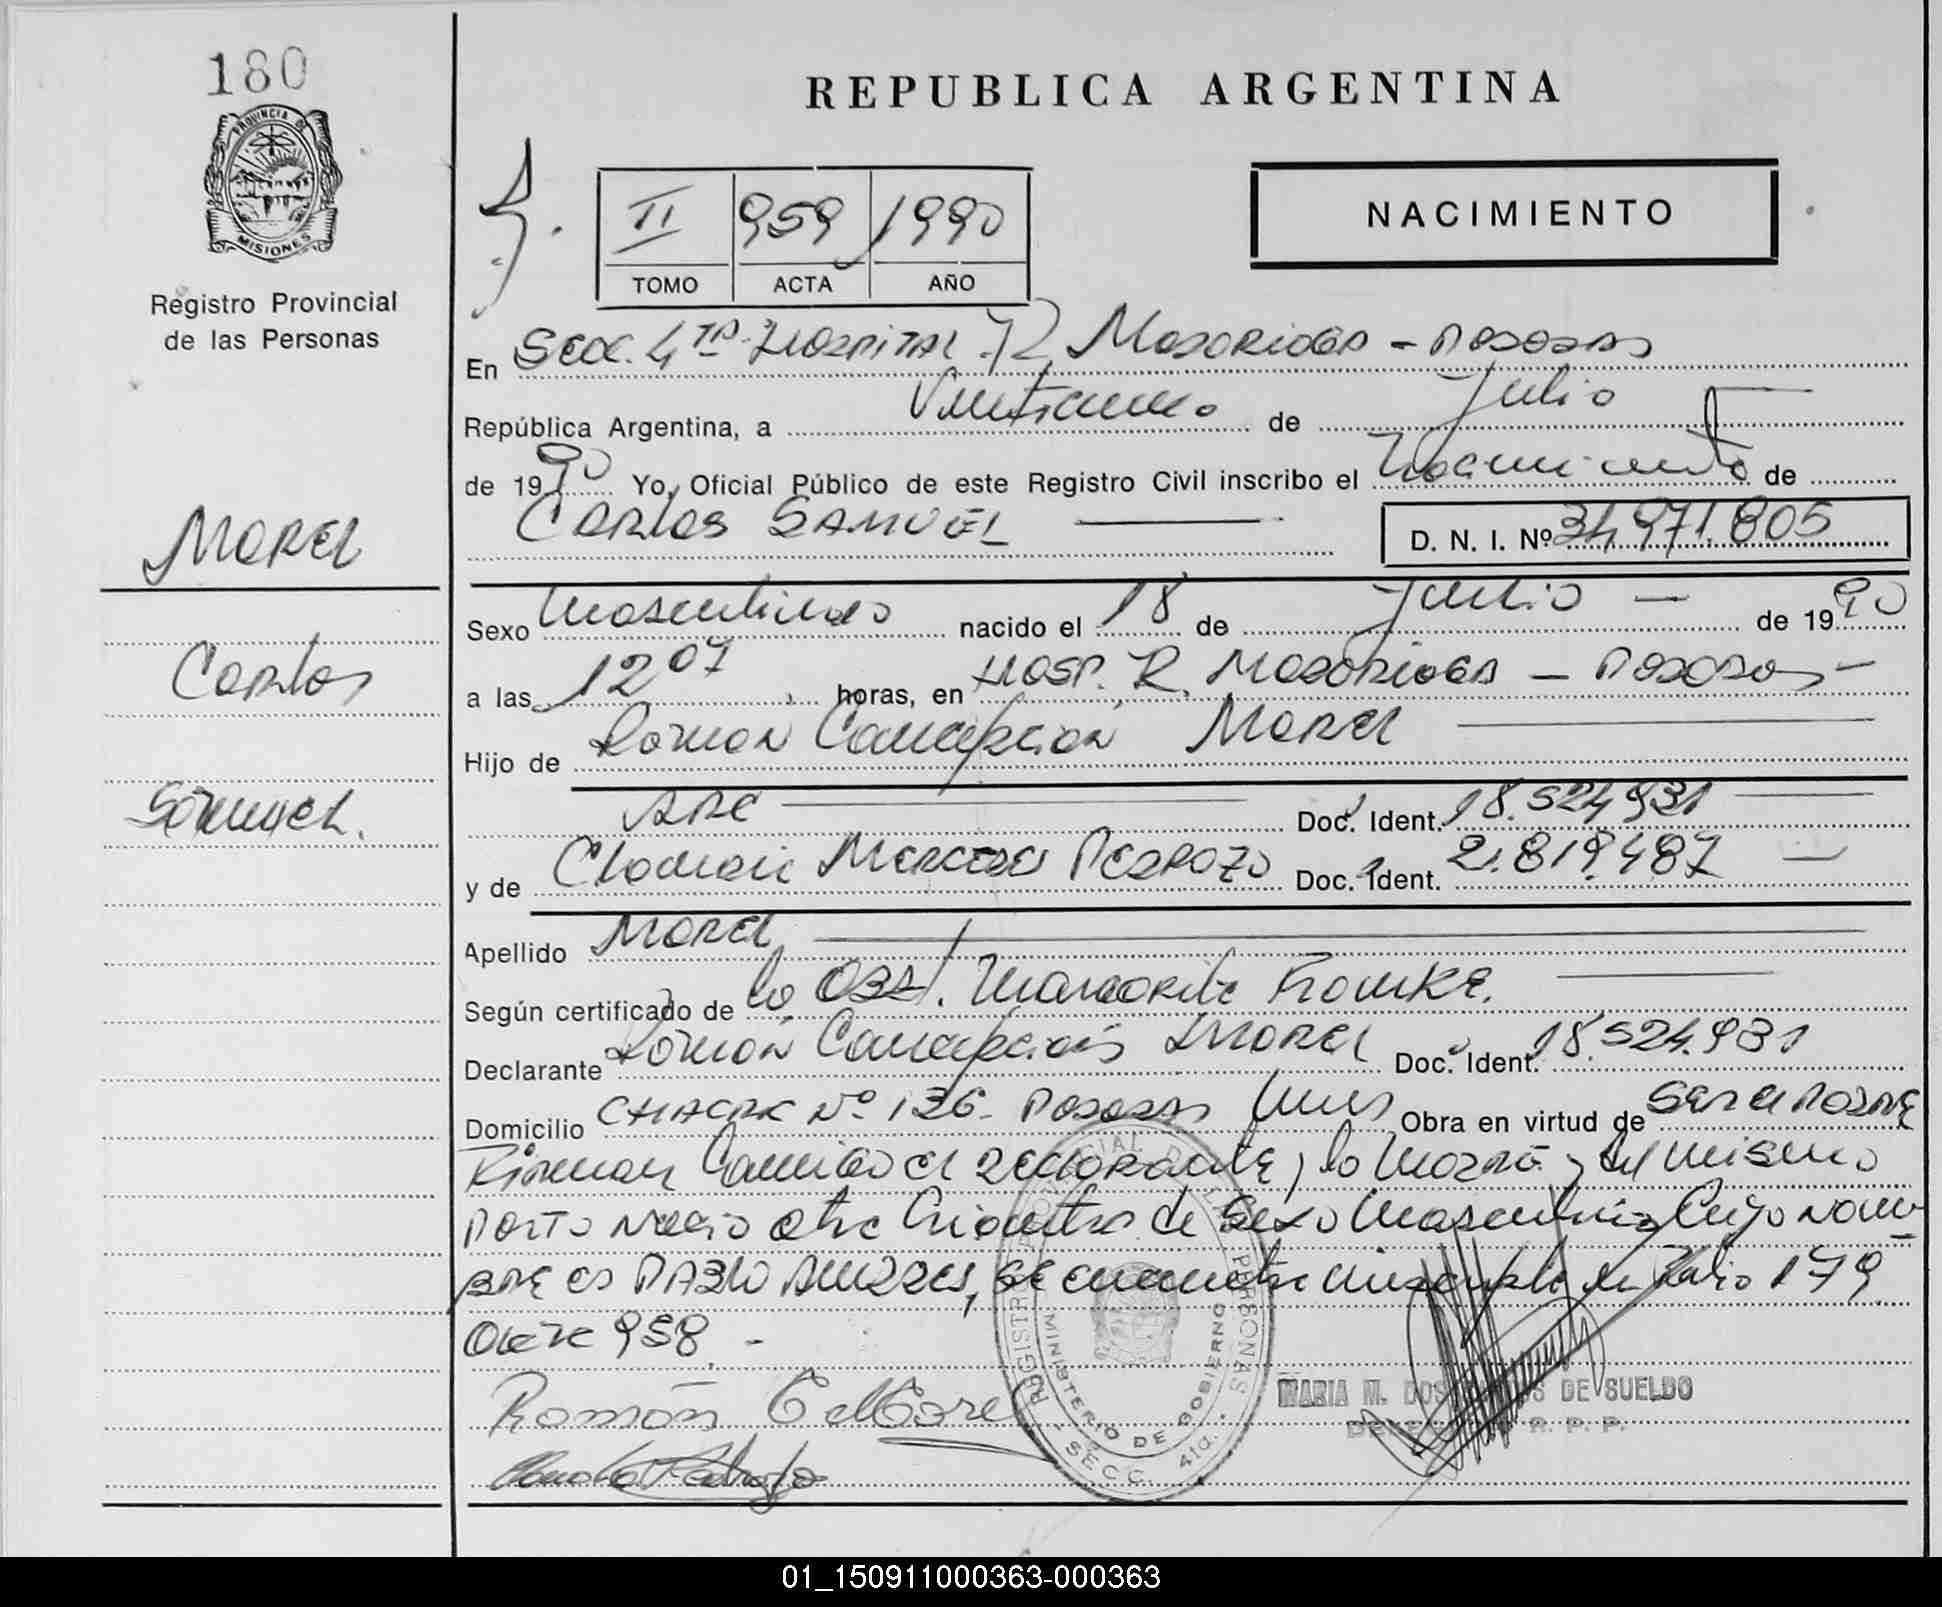 180
REPUBLICA ARGENTINA
PROVINCIA DE
MISIONES
Registro Provincial
de las Personas
II 959 1990
TOMO ACTA AÑO
NACIMIENTO
En Secc. 4ta. Hospital R. Madariaga - Posadas
República Argentina, a Veintiuno de Julio
de 1990 Yo, Oficial Público de este Registro Civil inscribo el Nacimiento de
Carlos SAMUEL D. N. I. Nº 34.971.805
Morel
Carlos
Samuel.
Sexo Masculino nacido el 18 de Julio de 1990
a las 12 07 horas, en Hosp. R. Madariaga - Posadas -
Hijo de Ramón Concepción Morel
Arg Doc. Ident. 18.524.931
y de Mercedes Pedrozo Doc. Ident. 21.819.487
Apellido Morel
Según certificado de la Obst. Margarita
Declarante Ramón Concepción Morel Doc. Ident. 18.524.931
Domicilio CHACRA Nº 136 - Posadas Mnes Obra en virtud de ser el padre
Firman conmigo el declarante y la madre y del mismo
parto nació otra criatura de sexo masculino cuyo nom-
bre es Pablo Andrés, se encuentra inscripto en Folio 179
Acta 958. -
Ramón C Morel
Pedrozo
REGISTRO PROVINCIAL DE LAS PERSONAS
MINISTERIO DE GOBIERNO
SECC. 4ta.
MARIA M. DOS DE SUELDO
R. P. P.
01_150911000363-000363